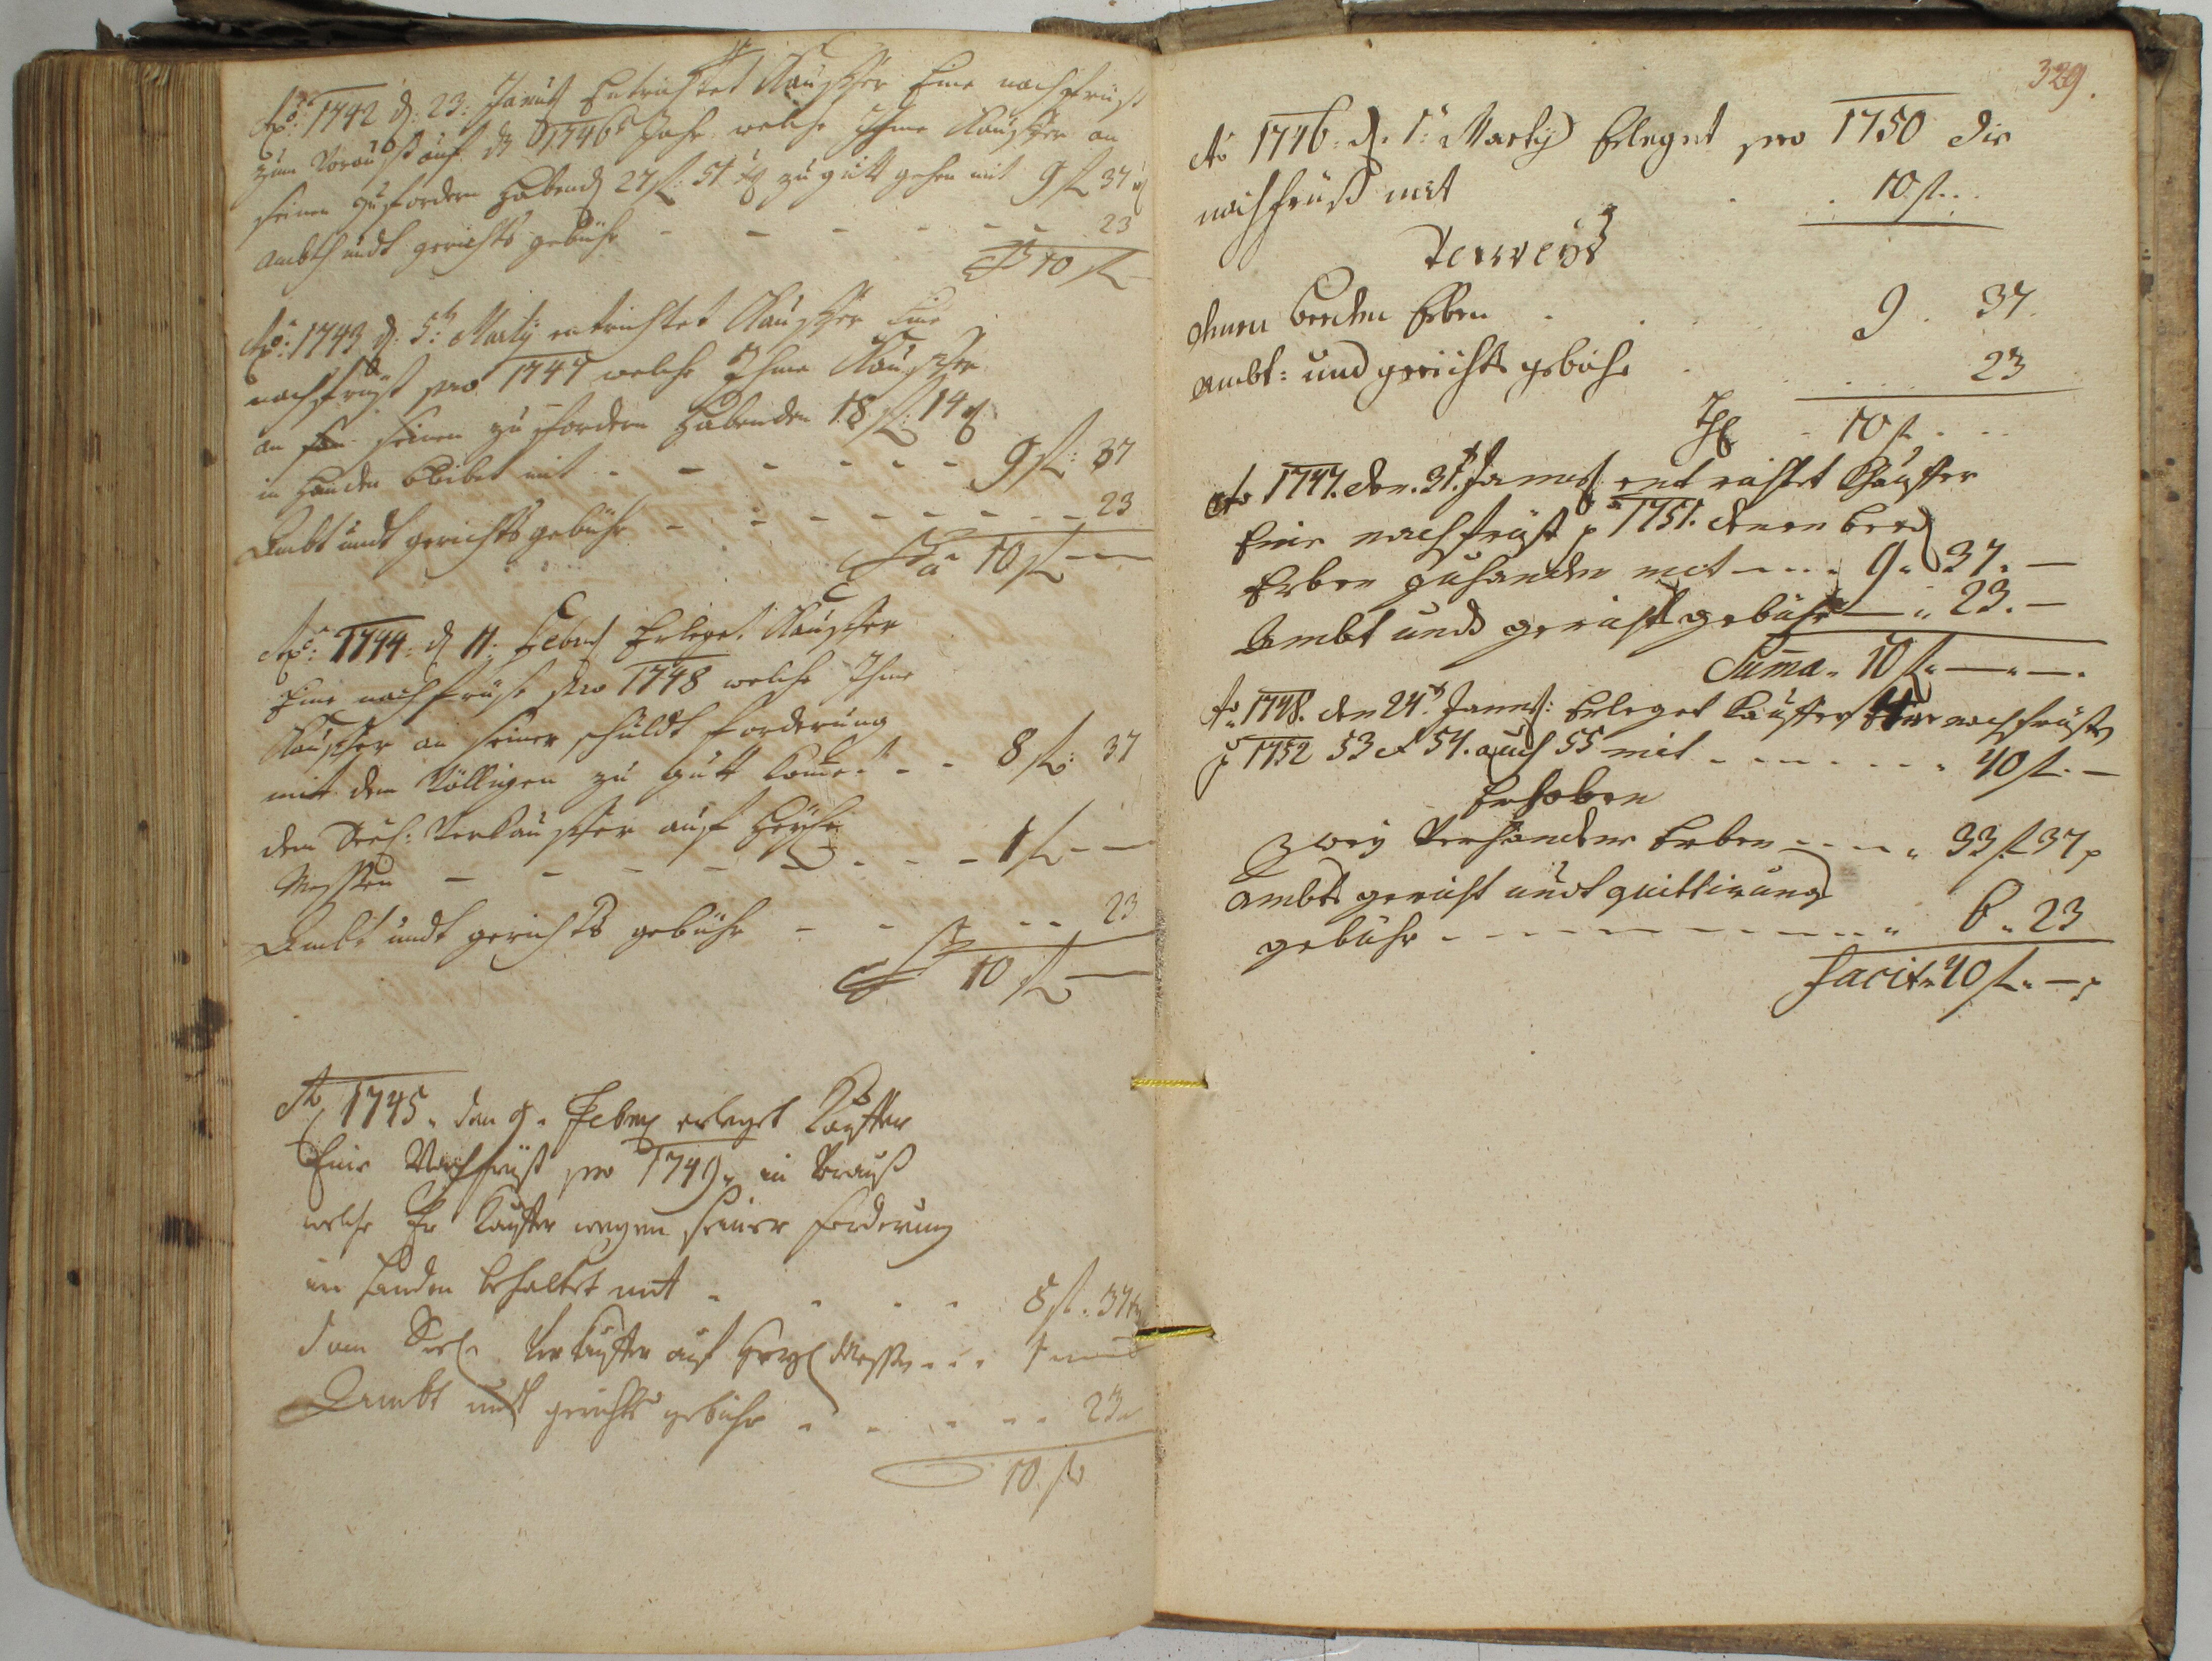 Aõ: 1742 d: 23: Januȷ Entrichtet Kauffer Eine nachfrüst
zum Vorauß auf dz 1746ᵗ Jahr welche Ihme Kauffer an
seinen zufordern habend 27 fl: 51 xr zu gutt gehen mit 9 fl 37 xr
Ambts undt gerichts gebühr - - - - - - 23
10 fl -
Aõ: 1743 d: 5ᵗ: Marty entrichtet Kauffer Eine
nachfrüst pro 1747 welche Ihme Kauffer
an seinen zu fordern habenden 18 fl: 14 xr
in handen bleibet mit - - - - - - 9 fl: 37
Ambt undt gerichts gebühr - - - - - - - 23
10 fl —
Aõ: 1744: d 11: Febr Erleget Kauffer
Eine nachfrüst pro 1748 welche Ihme
Kauffer an seiner schuldt forderung
mit dem Völligen zu gutt komet - - 8 fl: 37
dem Seel: Verkauffer auf Heyl:
Messen - - - - - - - - 1 fl - —
Ambt undt gerichts gebühr - - - - 23
10 fl —
Aõ 1745. den 9. Febr erleget Kauffer
Eine Nachfrüst pro 1749. in Vorauß
welche Er Kauffer wegen seiner forderung
in handen behaltet mit . . . . 8 fl. 37 xr
dem Seel. Verkauffer auf Heyl Messen . . . 1
Ambt undt gerichts gebühr . . . . . 23
10. fl
329.
Aõ 1746: d. 1ᵗ: Marty Erleget pro 1750 die
nachfrüst mit . . 10 fl. . .
denen beeden Erben . . . 9. 37.
Ambt: und gerichts gebühr . . . . 23
10 fl . . .
Aõ 1747. den. 31ᵗ. Januȷ entrichtet Kauffer
Eine nachfrüst p 1751. denen beed
Erben zuhanden mit - - - . 9. 37. —
Ambt undt gericht gebühr — " 23. —
Suma. 10 fl. — . — .
Aõ 1748. den 24ᵗ. Januȷ: Erleget Kauffer 4 nachfrüst
p 1752 53 et 54. auch 55 mit - - - - - - - 40 fl. —
Erhoben
Zwey Verhanden Erben - - - - " 33 fl 37
Ambts gericht undt quittirung
gebühr - - - - - - - - - - - " 6 " 23
facit 40 fl. —